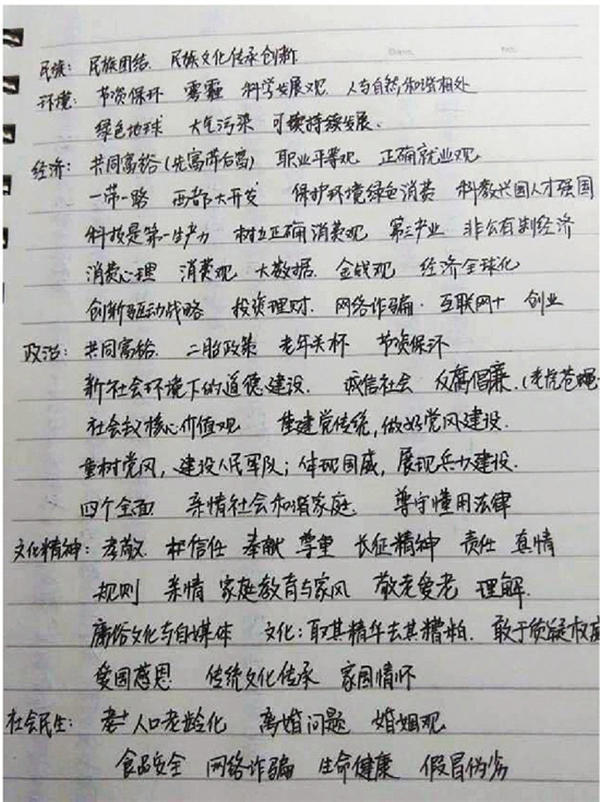 民族：民族团结 民族文化传承创新
环境：节资保环 雾霾 科学发展观 人与自然和谐相处
绿色地球 大气污染 可续持续发展.
经济：共同富裕(先富带后富) 职业平等观 正确就业观
一带一路 西部大开发 保护环境绿色消费 科教兴国人才强国
科技是第一生产力 树立正确消费观 第三产业 非公有制经济
消费心理 消费观 大数据 金钱观 经济全球化
创新驱动战略 投资理财 网络诈骗 互联网+ 创业
政治：共同富裕 二胎政策 老年关怀 节资保环
新社会环境下的道德建设 诚信社会 反腐倡廉.(老虎苍蝇
社会主义核心价值观 重建党传统,做好党风建设.
重树党风，建设人民军队；体现国威，展现兵力建设.
四个全面 亲情社会和谐家庭 尊守懂用法律
文化精神：孝敬 信任 奉献 尊重 长征精神 责任 真情
规则 亲情 家庭教育与家风 敬老爱老 理解
庸俗文化与自媒体 文化：取其精华去其糟粕. 敢于质疑权威
爱国感恩 传统文化传承 家国情怀
社会民生： 人口老龄化 离婚问题 婚姻观
食品安全 网络诈骗 生命健康 假冒伪劣